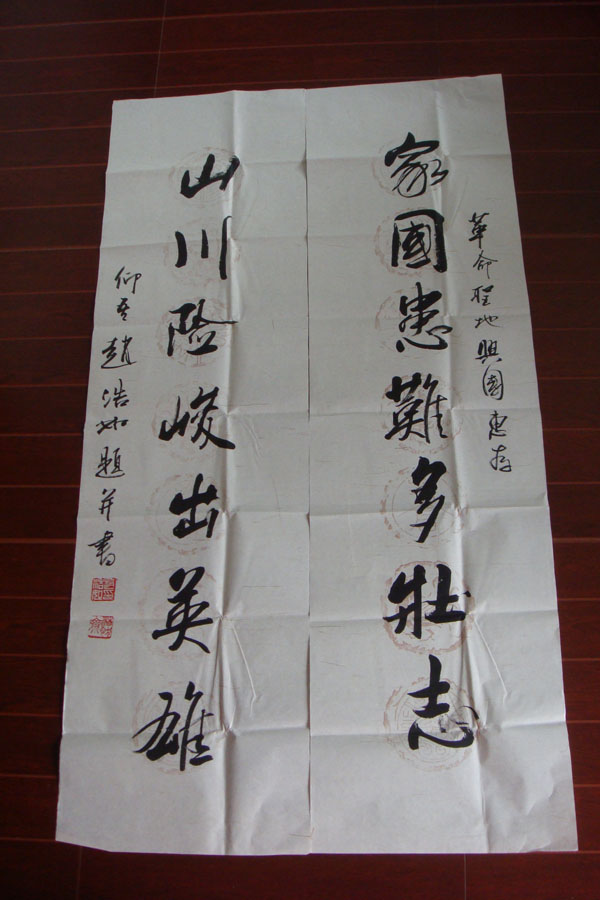 革命聖地興國惠存
家國患難多壯志
山川險峻出英雄
仰吾趙浩如題并書